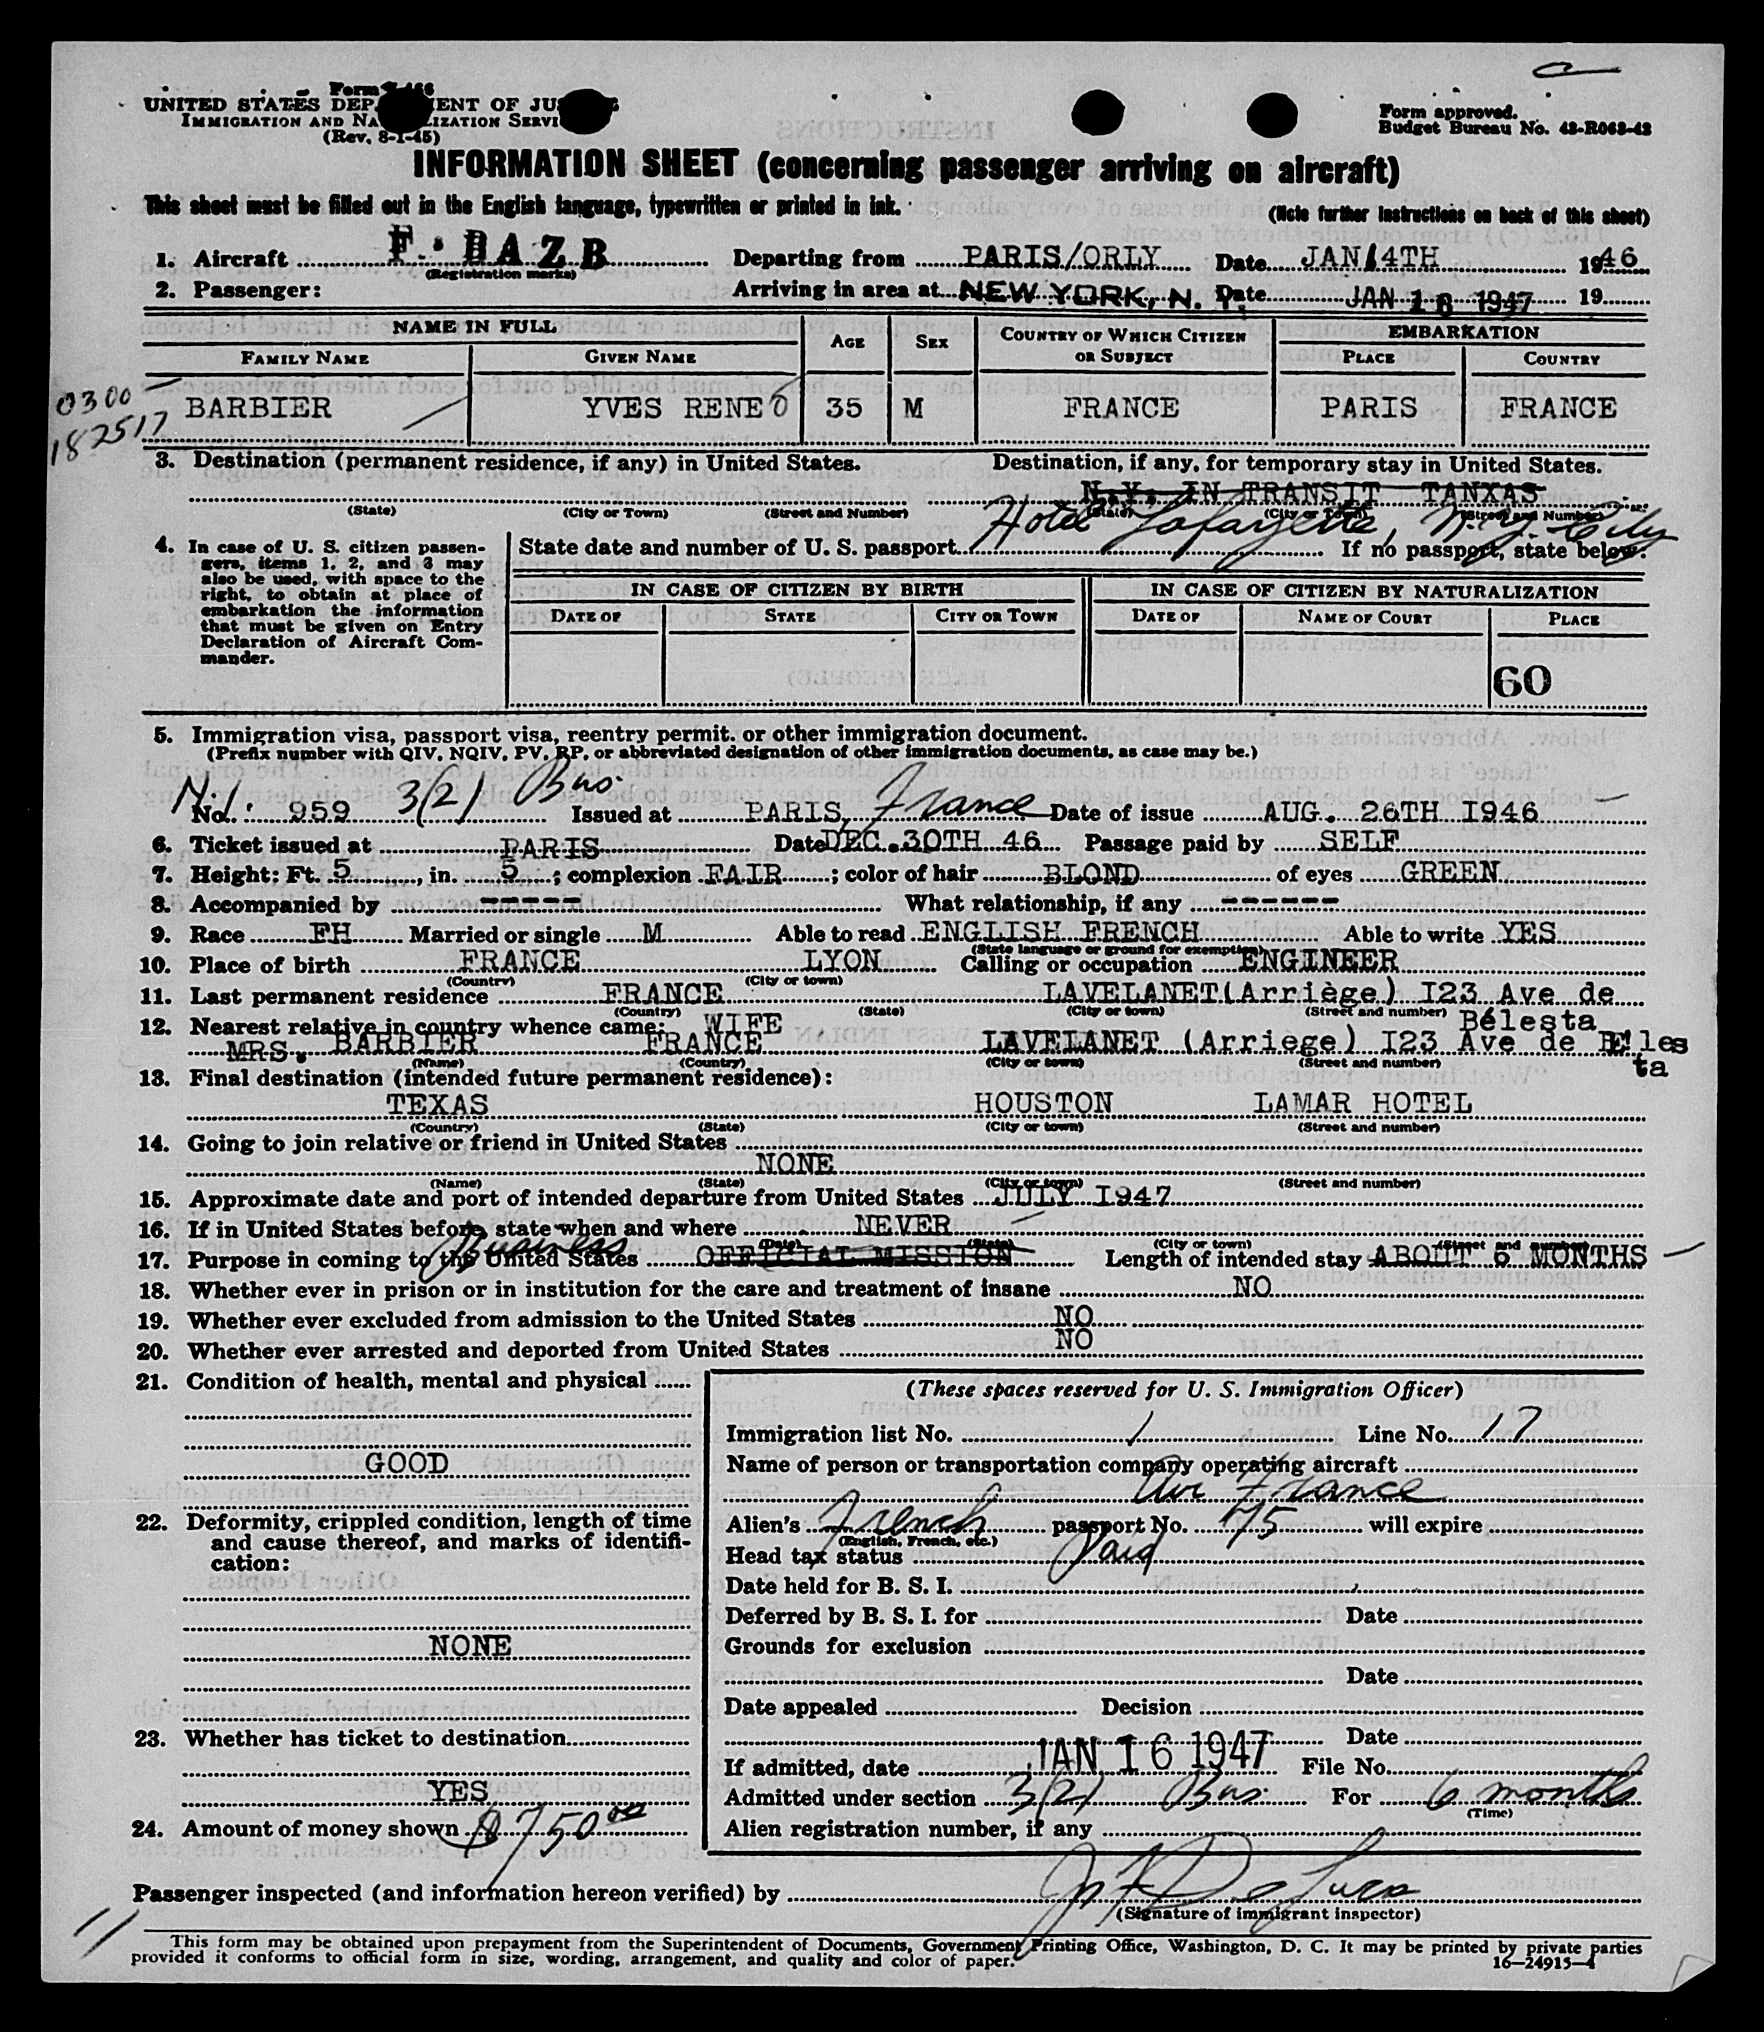 Form I-466
UNITED STATES DEPARTMENT OF JUSTICE
IMMIGRATION AND NATURALIZATION SERVICE
(Rev. 8-1-45)
Form approved.
Budget Bureau No. 43-R063-42
INFORMATION SHEET (concerning passenger arriving on aircraft)
This sheet must be filled out in the English language, typewritten or printed in ink.
(Note further instructions on back of this sheet)
1. Aircraft F. BAZB Departing from PARIS/ORLY Date JAN 14TH 1946
(Registration marks)
2. Passenger: Arriving in area at NEW YORK, N. Y. Date JAN 16 1947 19
NAME IN FULL AGE SEX COUNTRY OF WHICH CITIZEN OR SUBJECT EMBARKATION
FAMILY NAME GIVEN NAME PLACE COUNTRY
0300
182517
BARBIER YVES RENE 35 M FRANCE PARIS FRANCE
3. Destination (permanent residence, if any) in United States. Destination, if any, for temporary stay in United States.
N.Y. IN TRANSIT TANXAS
(State) (City or Town) (Street and Number) (State) (City or Town) (Street and Number)
Hotel Lafayette, N.Y. City
4. In case of U. S. citizen passengers, items 1, 2, and 3 may also be used, with space to the right, to obtain at place of embarkation the information that must be given on Entry Declaration of Aircraft Commander.
State date and number of U. S. passport If no passport, state below:
IN CASE OF CITIZEN BY BIRTH IN CASE OF CITIZEN BY NATURALIZATION
DATE OF STATE CITY OR TOWN DATE OF NAME OF COURT PLACE
60
5. Immigration visa, passport visa, reentry permit, or other immigration document.
(Prefix number with QIV, NQIV, PV, RP, or abbreviated designation of other immigration documents, as case may be.)
No. 959 3(2) Bus. Issued at PARIS, France Date of issue AUG. 26TH I946
6. Ticket issued at PARIS Date DEC.30TH 46 Passage paid by SELF
7. Height: Ft. 5, in. 5; complexion FAIR; color of hair BLOND of eyes GREEN
8. Accompanied by ----- What relationship, if any ------
9. Race FH Married or single M Able to read ENGLISH FRENCH Able to write YES
(State language or ground for exemption)
10. Place of birth FRANCE LYON Calling or occupation ENGINEER
(Country) (City or town)
11. Last permanent residence FRANCE LAVELANET(Arriège) I23 Ave de
(Country) (State) (City or town) (Street and number)
Bélesta
12. Nearest relative in country whence came: WIFE
MRS. BARBIER FRANCE LAVELANET (Arriege) I23 Ave de Béles
ta
(Name) (Country) (City or town) (Street and number)
13. Final destination (intended future permanent residence):
TEXAS HOUSTON LAMAR HOTEL
(Country) (State) (City or town) (Street and number)
14. Going to join relative or friend in United States
NONE
(Name) (State) (City or town) (Street and number)
15. Approximate date and port of intended departure from United States JULY I947
16. If in United States before, state when and where NEVER
(Date) (State) (City or town) (Street and number)
Business
17. Purpose in coming to the United States OFFICIAL MISSION Length of intended stay ABOUT 6 MONTHS
18. Whether ever in prison or in institution for the care and treatment of insane NO
19. Whether ever excluded from admission to the United States NO
20. Whether ever arrested and deported from United States NO
21. Condition of health, mental and physical
GOOD
22. Deformity, crippled condition, length of time and cause thereof, and marks of identification:
NONE
23. Whether has ticket to destination
YES
24. Amount of money shown $750.00
(These spaces reserved for U. S. Immigration Officer)
Immigration list No. 1 Line No. 17
Name of person or transportation company operating aircraft
Air France
Alien's French passport No. 75 will expire
(English, French, etc.)
Head tax status Paid
Date held for B. S. I.
Deferred by B. S. I. for Date
Grounds for exclusion
Date
Date appealed Decision
Date
If admitted, date JAN 16 1947 File No.
Admitted under section 3(2) Bus. For 6 months
(Time)
Alien registration number, if any
Passenger inspected (and information hereon verified) by
(Signature of immigrant inspector)
11
This form may be obtained upon prepayment from the Superintendent of Documents, Government Printing Office, Washington, D. C. It may be printed by private parties
provided it conforms to official form in size, wording, arrangement, and quality and color of paper.
16—24915-4